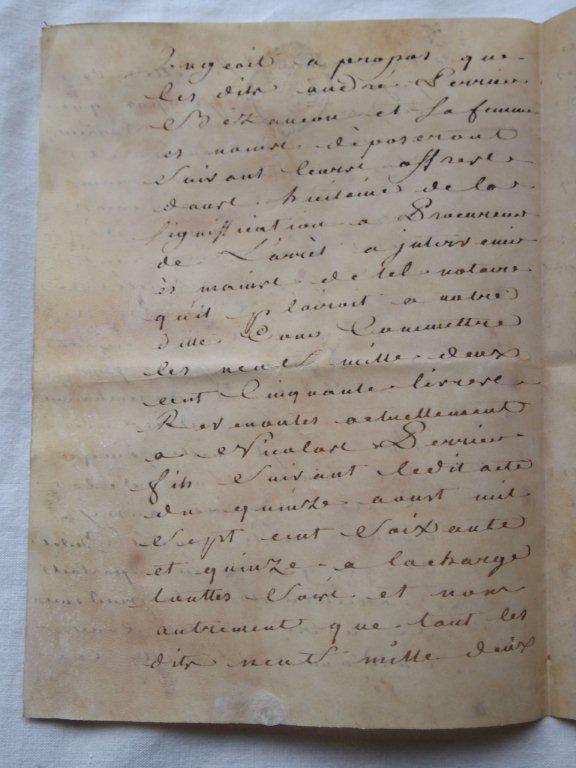 Jugeoit a propos que
les dits andré Perrier
Bezancon et Sa femme
es noms déposeront
Suivant leurs offres
dans huitaine de la
signiffication a Procureur
de Larrêt a intervenir
ès mains de tel notaire
qu'il plairoit a notre
dite Cour Commettre
les neuf mille deux
cent Cinquante livres
Revenantes actuellement
a Nicolas Perrier
fils Suivant ledit acte
du quinze aoust mil
Sept cent Soixante
et quinze a la charge
touttes fois et non
autrement que tout les
dits neuf mille deux